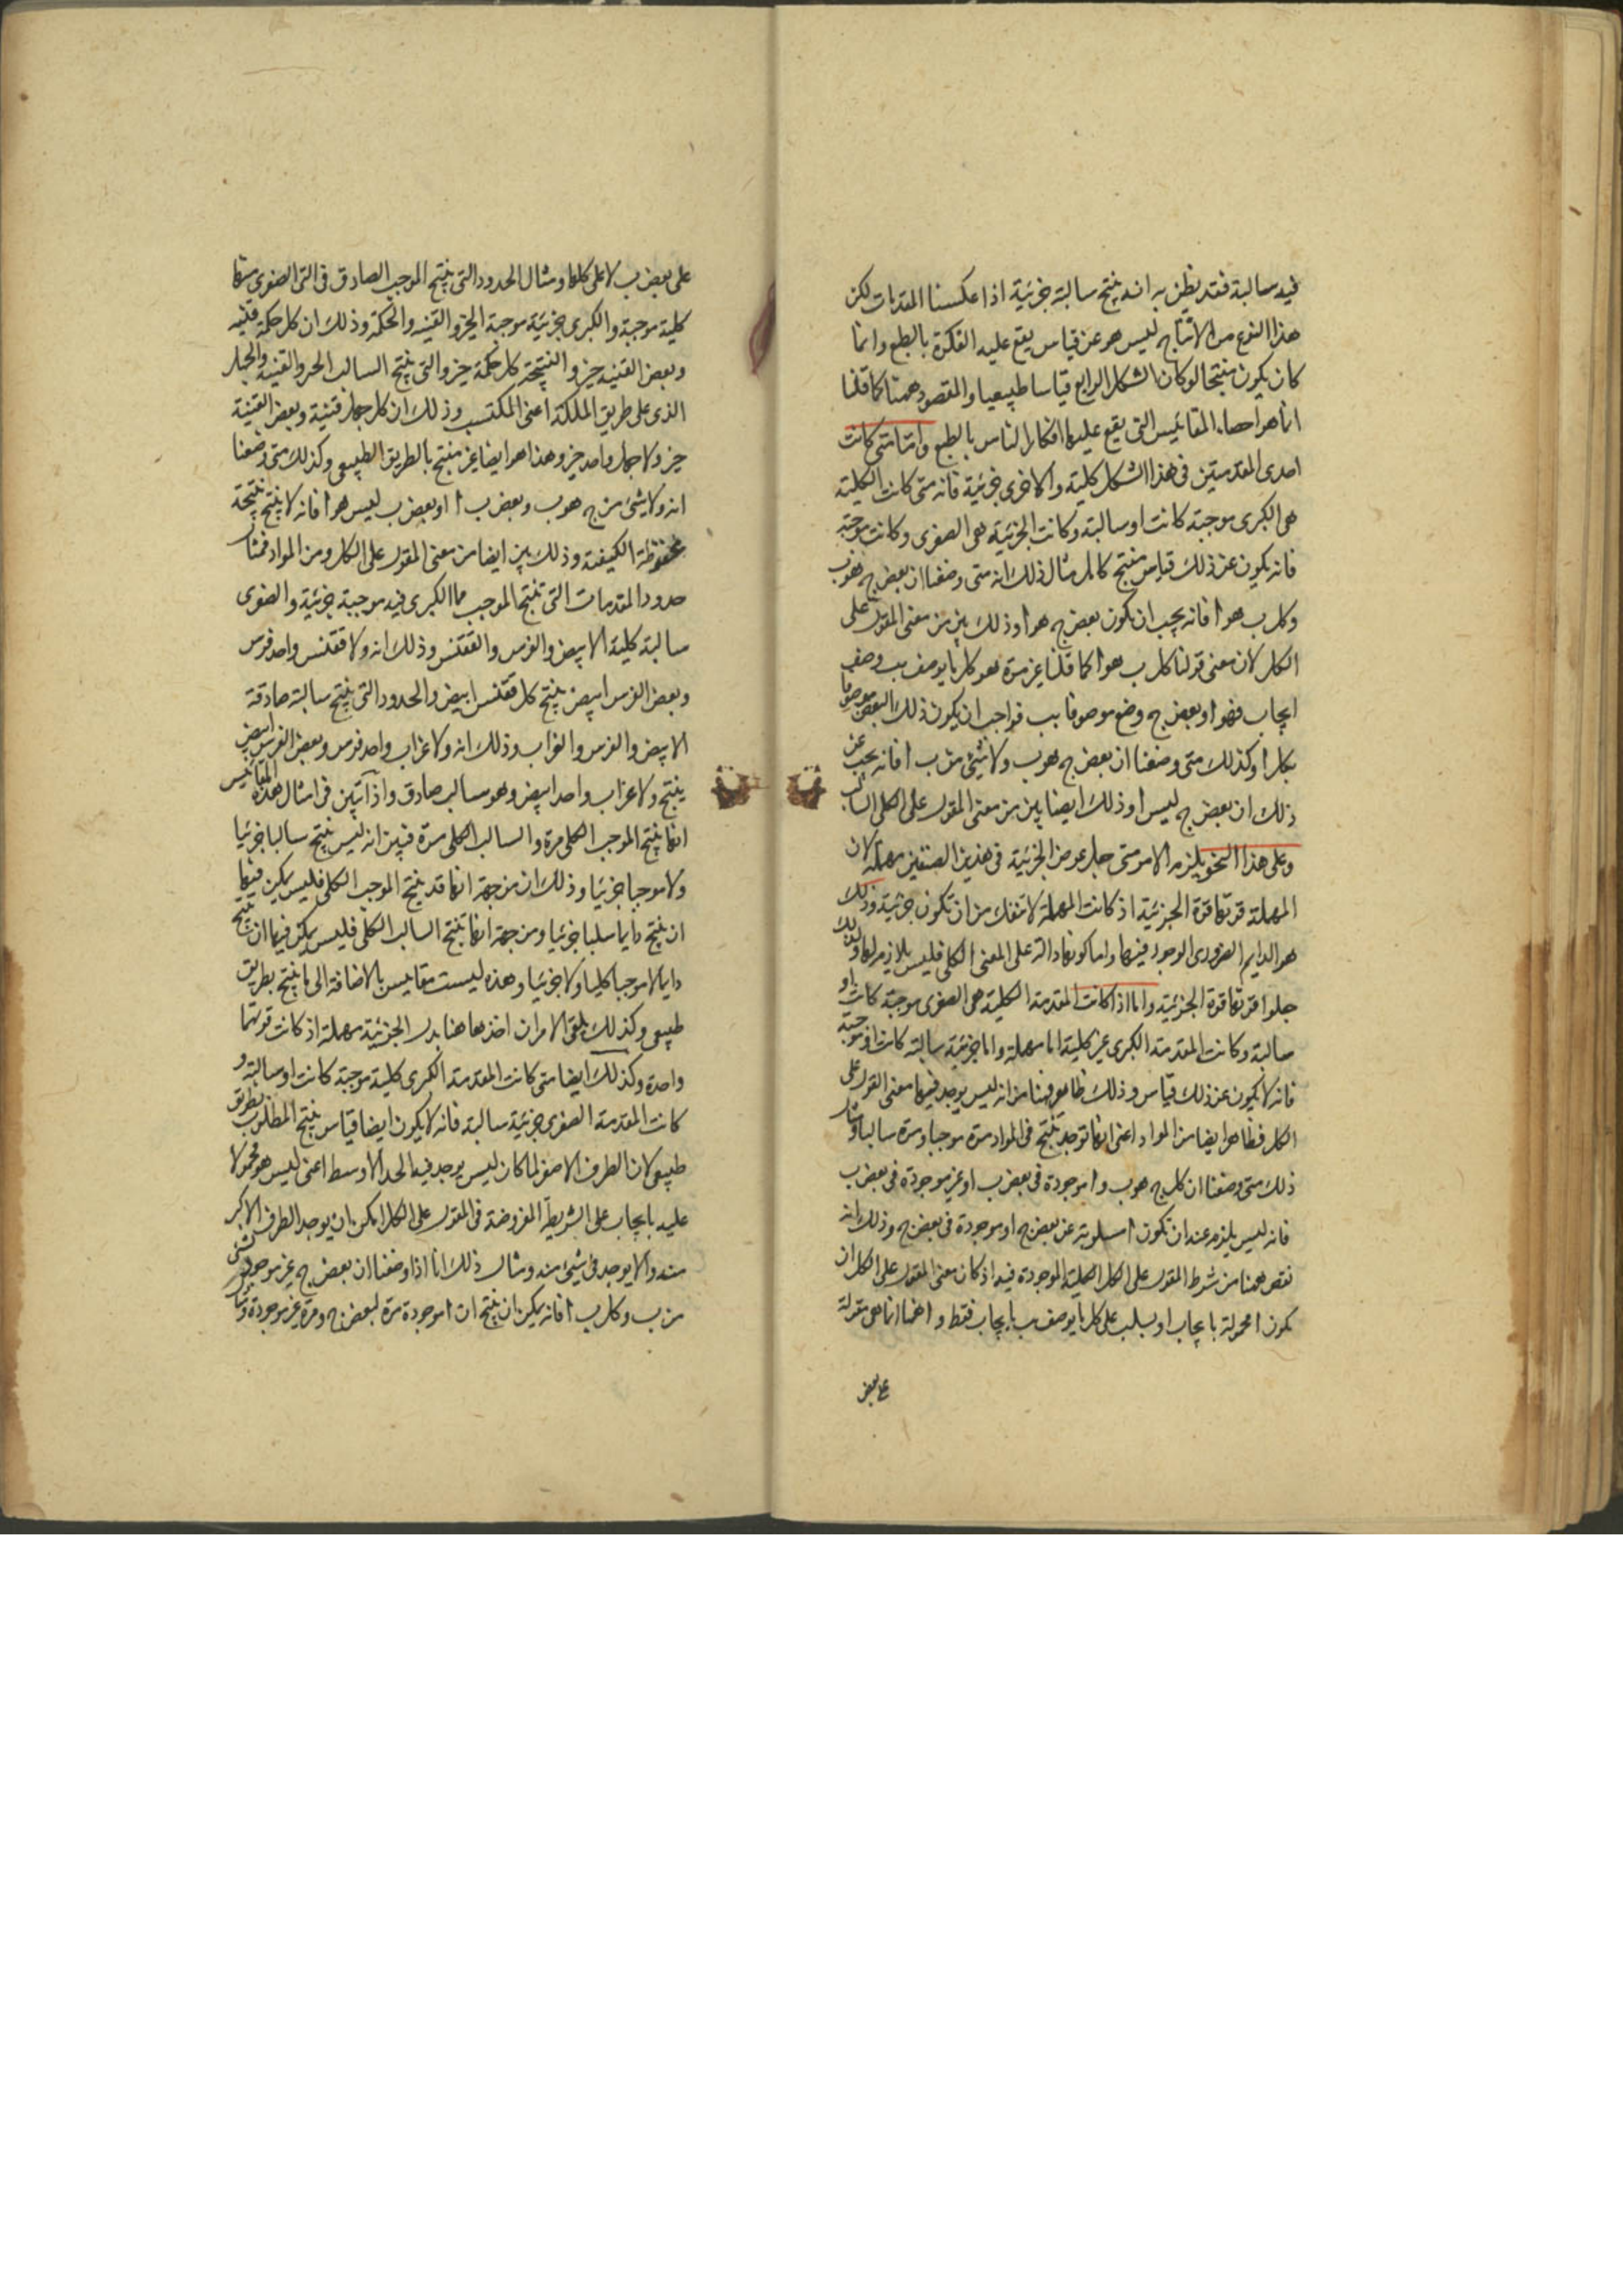 فيه سالبة فقد يظن به انه ينتج سالبة جزئية اذا عكسنا المقدمات لكن
هذا النوع من الانتاج ليس هو عن قياس يقع عليه الفكرة بالطبع وانما
كان يكون منتجا لو كان الشكل الرابع قياسا طبيعيا والمقصود ههنا كما قلنا
انما هو احصاء المقائيس التى يقع عليها افكار الناس بالطبع واما متى كانت
احدى المقدمتين فى هذا الشكل كلية والاخرى جزئية فانه متى كانت الكلية
هى الكبرى موجبة كانت او سالبة وكانت الجزئية هى الصغرى وكانت موجبة
فانه يكون عن ذلك قياس منتج كامل مثال ذلك انه متى وضعنا ان بعض ج هو ب
وكل ب هو ا فانه يجب ان يكون بعض ج هو ا وذلك بين من معنى المقول على
الكل لان معنى قولنا كل ب هو ا كما قلنا غير مرة هو كل ما يوصف بب وصف
ايجاب فهو ا وبعض ج وضع موصوفا بب فواجب ان يكون ذلك البعض موصوفا
بكل ا وكذلك متى وضعنا ان بعض ج هو ب ولا شيئ من ب ا فانه يجب عن
ذلك ان بعض ج ليس ا وذلك ايضا بين من معنى المقول على الكل السالب
وعلى هذا النحو يلزم الامر متى جعل عوض الجزئية فى هذين الصنفين مهملة لان
المهملة قوتها قوة الجزئية اذ كانت المهملة لا تنفك من ان تكون جزئية وذلك
هو الدايم الضرورى الوجود فيها واما كونها دالة على المعنى الكلى فليس بلازم لها ولذلك
جعلوا قوتها قوة الجزئية واما اذا كانت المقدمة الكلية هى الصغرى موجبة كانت او
سالبة وكانت المقدمة الكبرى غير كلية اما مهملة واما جزئية سالبة كانت او موجبة
فانه لا يكون عن ذلك قياس وذلك ظاهر ههنا من انه ليس يوجد فيها معنى القول على
الكل فظاهر ايضا من المواد اعنى انها توجد تنتج فى المواد مرة موجبا ومرة سالبا ومثال
ذلك متى وضعنا ان كل ج هو ب وا موجودة فى بعض ب او غير موجودة فى بعض ب
فانه ليس يلزم عنه ان تكون ا مسلوبة عن بعض ج او موجودة فى بعض ج وذلك انه
نقص ههنا من شرط المقول على الكل الكلية الموجودة فيه اذ كان معنى المقول على الكل ان
تكون ا محمولة بايجاب او بسلب على كل ما يوصف ب بايجاب فقط و ا ههنا انما هى مقولة
على بعض
على بعض ب لا على كلها ومثال الحدود التى ينتج الموجب الصادق فى التى الصغرى منها
كلية موجبة والكبرى جزئية موجبة الخير والقنية والحكمة وذلك ان كل حكمة قنية
وبعض القنية خير والنتيجة كل حكمة خير والتى ينتج السالب الخير والقنية والجهل
الذى على طريق الملكة اعنى المكتسب وذلك ان كل جهل قنية وبعض القنية
خير ولا جهل واحد خير وهذا هو ايضا غير منتج بالطريق الطبيعى وكذلك متى وضعنا
انه ولا شيئ من ج هو ب وبعض ب ا او بعض ب ليس هو ا فانه لا ينتج نتيجة
محفوظة الكيفية وذلك بين ايضا من معنى المقول على الكل ومن المواد فمثال
حدود المقدمات التى تنتج الموجب مما الكبرى فيه موجبة جزئية والصغرى
سالبة كلية الابيض والفرس والققنس وذلك انه ولا ققنس واحد فرس
وبعض الفرس ابيض ينتج كل ققنس ابيض والحدود التى ينتج سالبة صادقة
الابيض والفرس والغراب وذلك انه ولا غراب واحد فرس وبعض الفرس ابيض
ينتج ولا غراب واحد ابيض وهو سالب صادق واذا تبين فى امثال هذه المقائيس
انها ينتج الموجب الكلى مرة والسالب الكلى مرة فبين انه ليس ينتج سالبا جزئيا
ولا موجبا جزئيا وذلك ان من جهة انها قد ينتج الموجب الكلى فليس يمكن فيها
ان ينتج دايما سلبا جزئيا ومن جهة انها تنتج السالب الكلى فليس يمكن فيها ان ينتج
دايما لا موجبا كليا ولا جزئيا وهذه ليست مقاييس بالاضافة الى ما ينتج بطريق
طبيعى وكذلك يلقى الامر ان اخذها هنا بدل الجزئية مهملة اذ كانت قوتهما
واحدة وكذلك ايضا متى كانت المقدمة الكبرى كلية موجبة كانت او سالبة و
كانت المقدمة الصغرى جزئية سالبة فانه لا يكون ايضا قياس ينتج المطلوب بطريق
طبيعى لان الطرف الاصغر لما كان ليس يوجد فيه الحد الاوسط اعنى ليس هو محمولا
عليه بايجاب على الشريطة المفروضة فى المقول على الكل امكن ان يوجد الطرف الاكبر
منه والا يوجد فى شيئ منه ومثال ذلك انا اذا وضعنا ان بعض ج غير موجود
من ب وكل ب ا فانه يمكن ان ينتج ان ا موجودة مرة لبعض ج ومرة غير موجودة